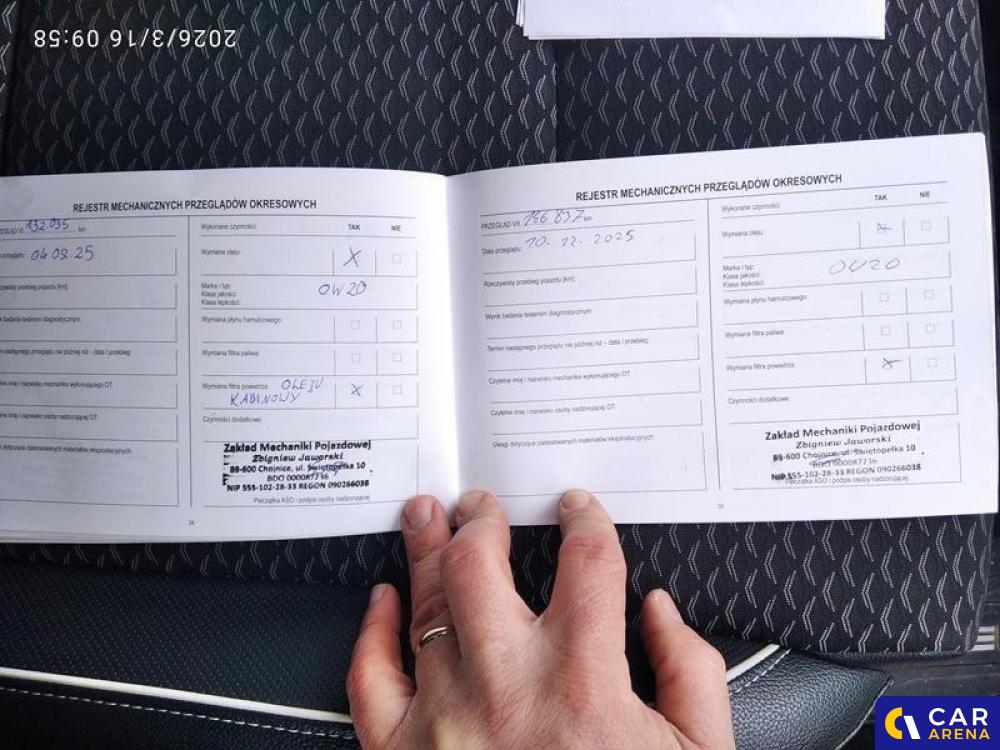 2026/3/16 09:58
REJESTR MECHANICZNYCH PRZEGLĄDÓW OKRESOWYCH
132 035 km
04 09. 25
rzeczywisty przebieg pojazdu [km]:
Wynik badania testerem diagnostycznym:
Termin następnego przeglądu nie później niż – data / przebieg:
Czytelne imię i nazwisko mechanika wykonującego OT:
Czytelne imię i nazwisko osoby nadzorującej OT:
dotyczące zastosowanych materiałów eksploatacyjnych:
Wykonane czynności: TAK NIE
Wymiana oleju: X
Marka i typ: 0W20
Klasa jakości:
Klasa lepkości:
Wymiana płynu hamulcowego:
Wymiana filtra paliwa:
Wymiana filtra powietrza: OLEJU X
KABINOWY
Czynności dodatkowe:
Zakład Mechaniki Pojazdowej
Zbigniew Jaworski
89-600 Chojnice, ul. Świętopełka 10
BDO 000087736
NIP 555-102-28-33 REGON 090266038
Pieczątka ASO i podpis osoby nadzorującej
34
REJESTR MECHANICZNYCH PRZEGLĄDÓW OKRESOWYCH
PRZEGLĄD VII 156 837 km
Data przeglądu: 10. 12. 2025
Rzeczywisty przebieg pojazdu [km]:
Wynik badania testerem diagnostycznym:
Termin następnego przeglądu nie później niż – data / przebieg:
Czytelne imię i nazwisko mechanika wykonującego OT:
Czytelne imię i nazwisko osoby nadzorującej OT:
Uwagi dotyczące zastosowanych materiałów eksploatacyjnych:
Wykonane czynności: TAK NIE
Wymiana oleju: X
Marka i typ: 0W20
Klasa jakości:
Klasa lepkości:
Wymiana płynu hamulcowego:
Wymiana filtra paliwa:
Wymiana filtra powietrza: X
Czynności dodatkowe:
Zakład Mechaniki Pojazdowej
Zbigniew Jaworski
89-600 Chojnice, ul. Świętopełka 10
BDO 000087736
NIP 555-102-28-33 REGON 090266038
Pieczątka ASO i podpis osoby nadzorującej
35
CAR
ARENA